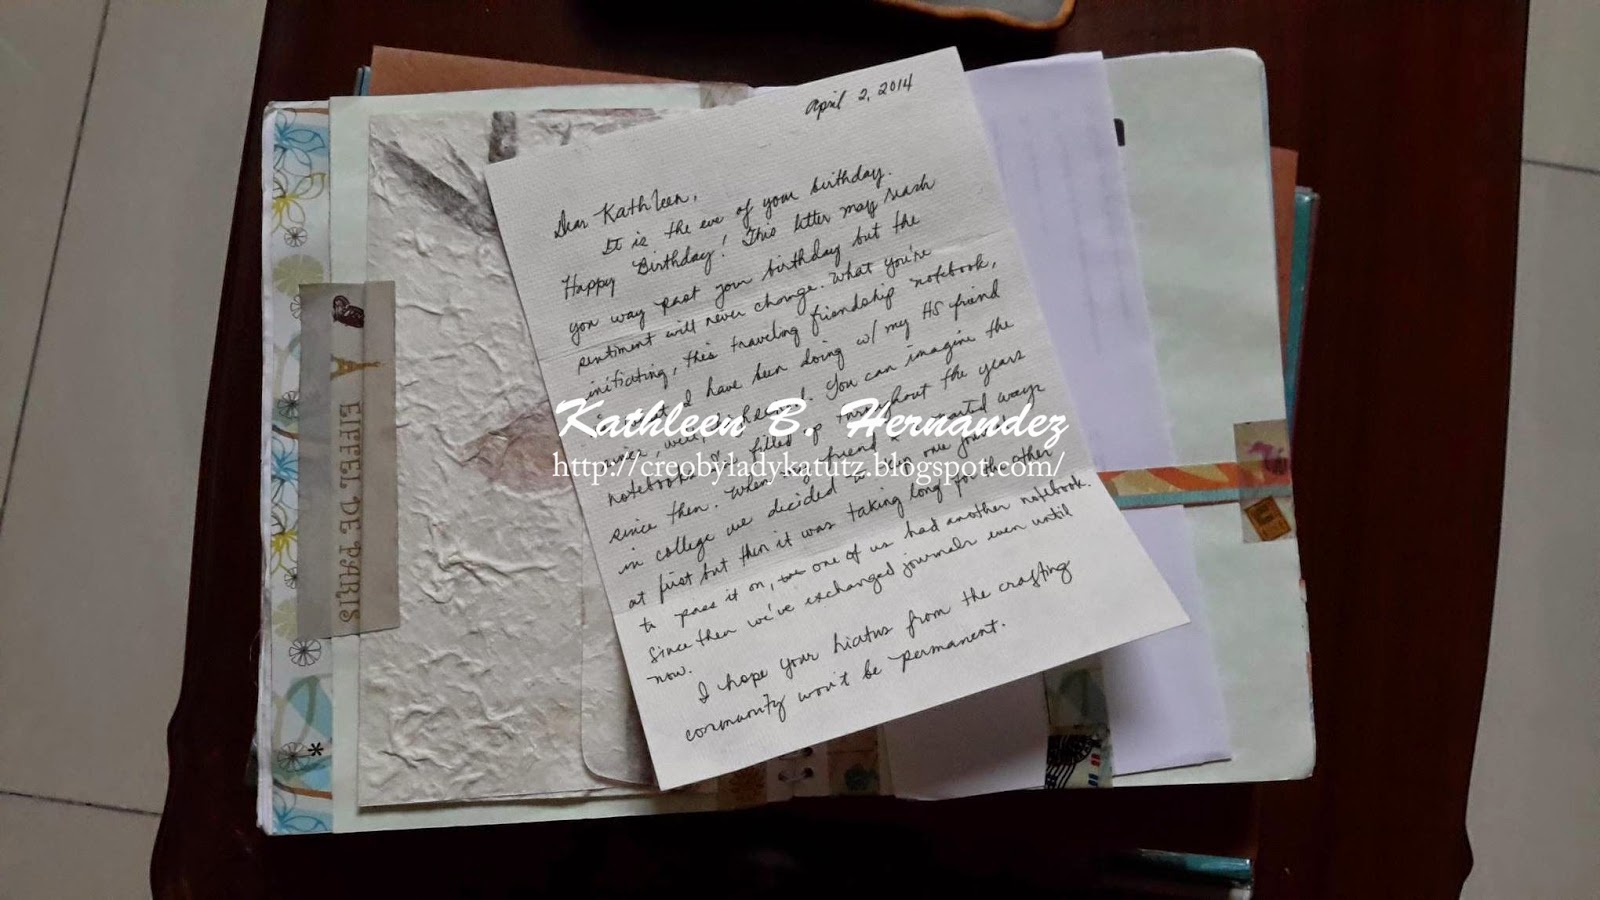 April 2, 2014
Dear Kathleen,
It is the eve of your birthday.
Happy Birthday! This letter may reach
you way past your birthday but the
sentiment will never change. What you're
initiating, this traveling friendship notebook,
is what I have been doing w/ my HS friend
since, well, high school. You can imagine the
notebooks filled up throughout the years
since then. When my friend & parted ways
in college we decided to one journal
at first but then it was taking long for the other
to pass it on, one of us had another notebook.
Since then we've exchanged journals even until
now.
I hope your hiatus from the crafting
community won't be permanent.
Kathleen B. Hernandez
http://creobyladykatutz.blogspot.com/
EIFFEL DE PARIS
*